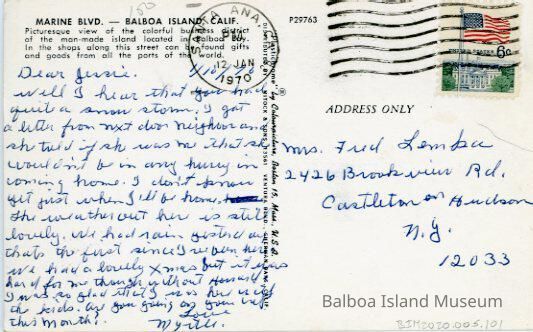 100
MARINE BLVD. — BALBOA ISLAND, CALIF.
Picturesque view of the colorful business district
of the man-made island located in Balboa Bay.
In the shops along this street can be found gifts
and goods from all the ports of the world.
P29763
SANTA ANA,
PM
12 JAN
1970
UNITED STATES
6c
1/10/
Dear Jessie.
Well I hear that you had
quite a snow storm. I got
a letter from nxt door neighbor and
she told if she was me that she
wouldn't be in any hurry in
coming home. I don't know
yet just when I'll be home,
the weather out here is still
lovely. We had rain yesterday
thats the first since I've been here
We had a lovely Xmas but it was
hard for me though without Howard.
I was so glad that I was here with
the kids. Are you going on your
this Month?
Love
Myrtle.
"Plastichrome" by Colourpicture, Boston 15, Mass. U.S.A.
ADDRESS ONLY
Mrs. Fred Lemka
2426 Brookview Rd.
Castleton on Hudson
N.Y.
12033
Balboa Island Museum
BIM2020.005.101